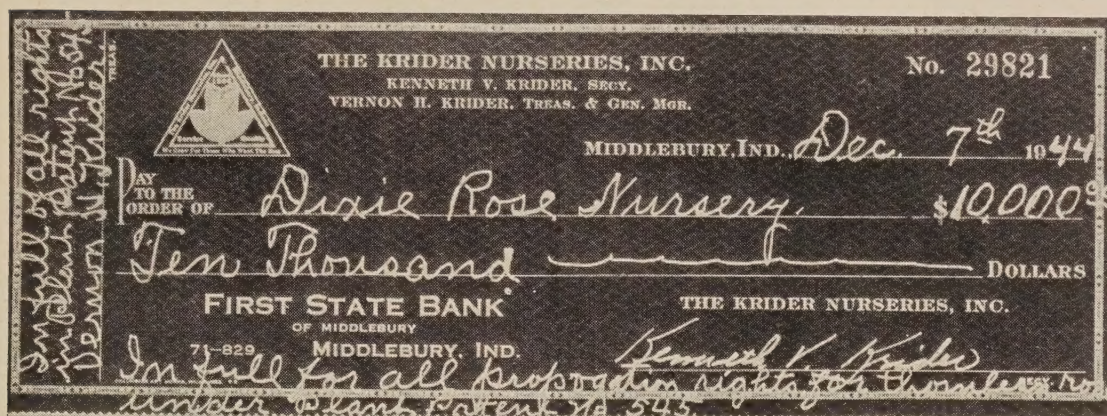 In full of all rights
in Plant Patent No 543
Vernon H. Krider
TREAS.
Service
THE KRIDER NURSERIES, INC.
KENNETH V. KRIDER, SECY.
VERNON H. KRIDER, TREAS. & GEN. MGR.
No. 29821
MIDDLEBURY, IND., Dec. 7th 1944
PAY TO THE ORDER OF Dixie Rose Nursery. $10,000
Ten Thousand DOLLARS
FIRST STATE BANK
OF MIDDLEBURY
71-829 MIDDLEBURY, IND.
THE KRIDER NURSERIES, INC.
Kenneth V. Krider
SECY.
In full for all propogation rights for thornless
under Plant Patent No 543.